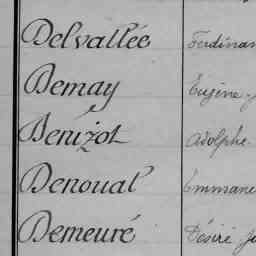 Delvallée Ferdinan
Demay Eugène
Dénizot Adolphe
Denoual Emmane
Demeuré Désiré Je